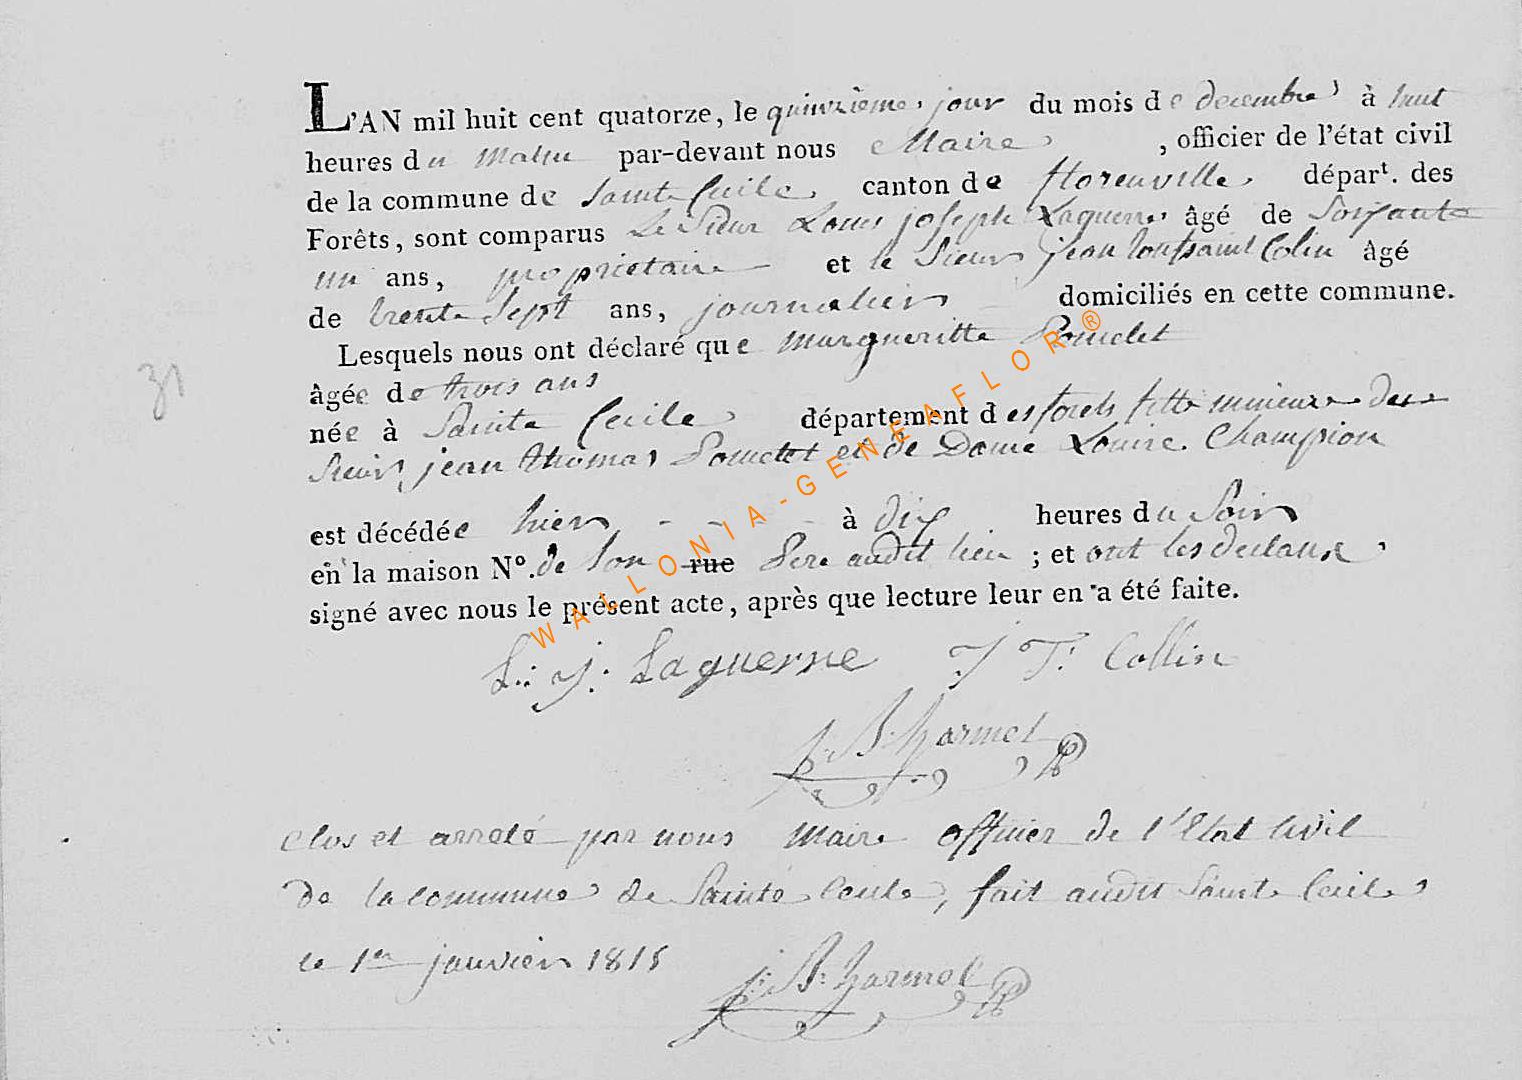 L'AN mil huit cent quatorze, le quinzième jour du mois de decembre à huit
heures du matin par-devant nous Maire , officier de l'état civil
de la commune de Sainte Cecile canton de florenville dépar^t. des
Forêts, sont comparus Le Sieur Louis joseph Laguerre âgé de Soixante
un ans, proprietaire et le Sieur jean toussaint Colin âgé
de trente Sept ans, journalier domiciliés en cette commune.
Lesquels nous ont déclaré que margueritte Poncelet
31
âgée de trois ans
née à Sainte Cecile département des forets fille mineure du
Sieur jean thomas Poncelet et de Dame Louise Champion
est décédée hier - - - - à dix heures du Soir
en la maison N°. de son rue Pere audit lieu ; et ont les declarans
signé avec nous le présent acte, après que lecture leur en a été faite.
WALLONIA-GENEAFLOR®
L: J: Laguerre J T: Collin
J: B: harmel
clos et arreté par nous maire officier de l'Etat Civil
de la commune de Sainte Cecile, fait audit Sainte Cecile
le 1er janvier 1815
J: B: harmel